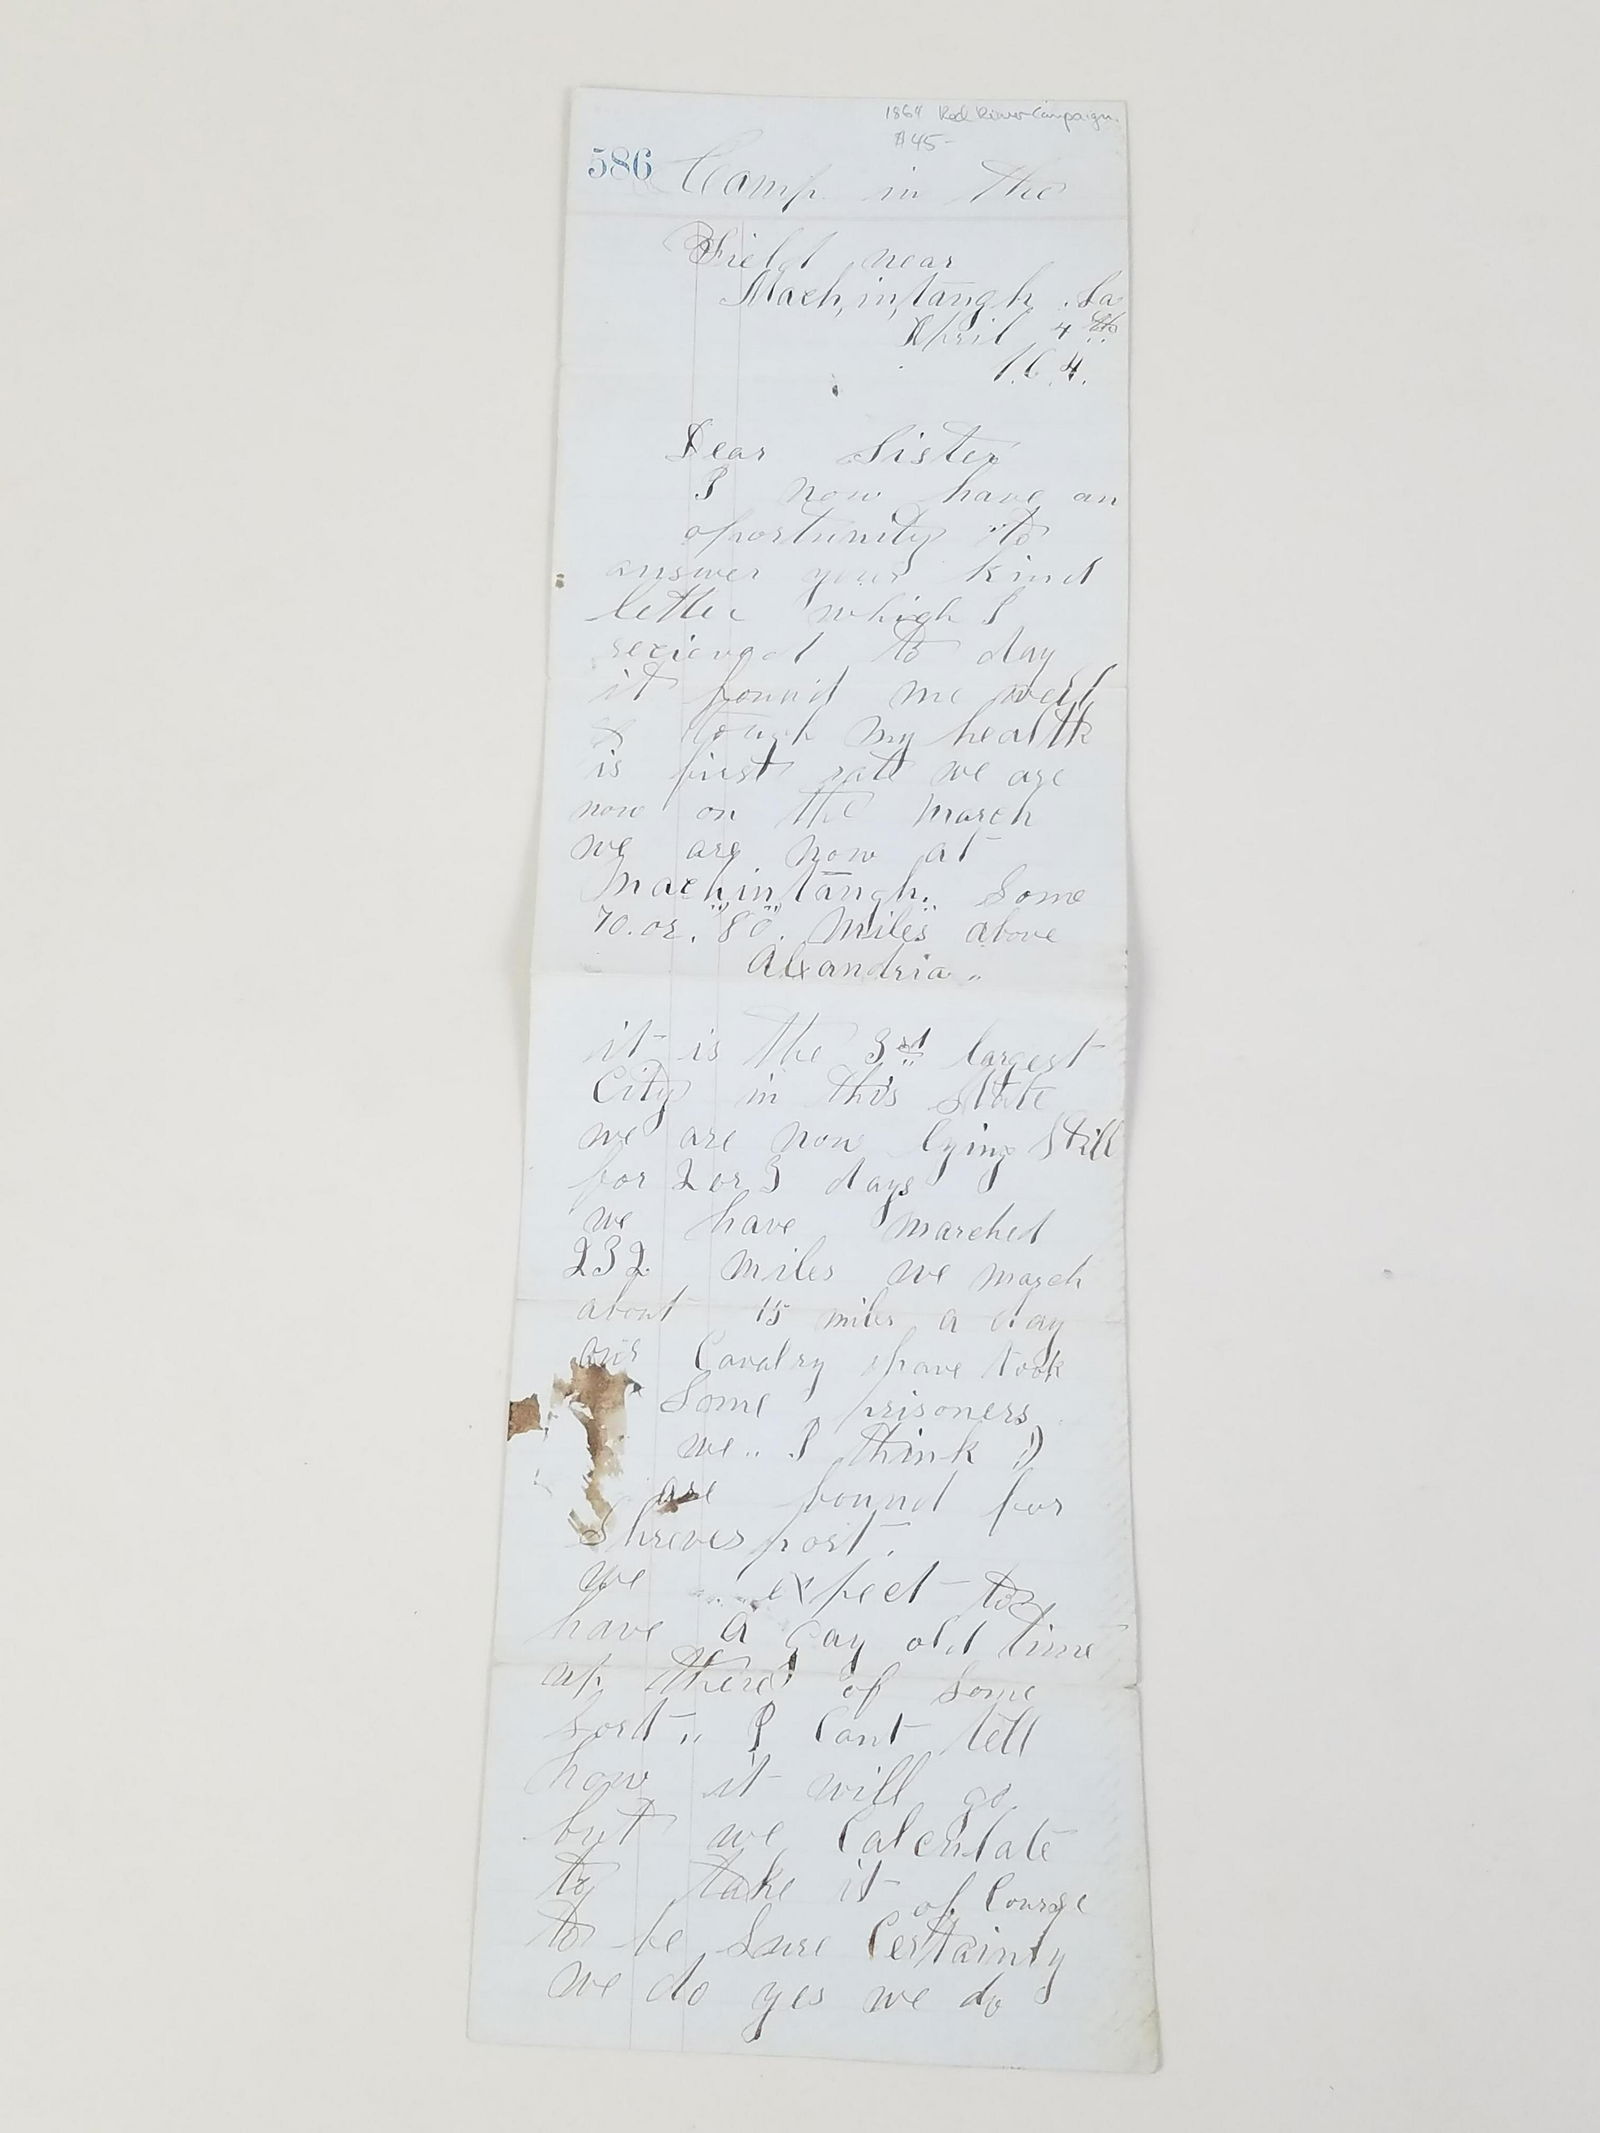 1864 Red River Campaign.
$45-
586 Camp in the
Field near
Mach,in,tangh . La
April 4th
1.6.4.
Dear Sister
I now have an
oportunity to
answer your kind
letter which I
recieved to day
it found me well
& tough my health
is first rate we are
now on the march
we are now at
Machintangh. Some
70. or. 80. miles above
Alxandria
it is the 3rd largest
City in this State
we are now lying Still
for 2 or 3 days
we have marched
232 miles we march
about 15 miles a day
our Cavalry have took
Some prisoners
we.. I think
are bound for
Shrevesport.
we expect to
have a gay old time
up there of some
sort.. I Cant tell
how it will go
but we Calculate
to take it of Course
to be Sure Certainty
we do yes we do